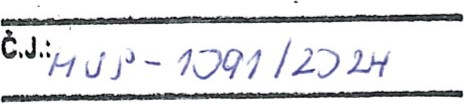 Č.J.: MUP-1091/2024